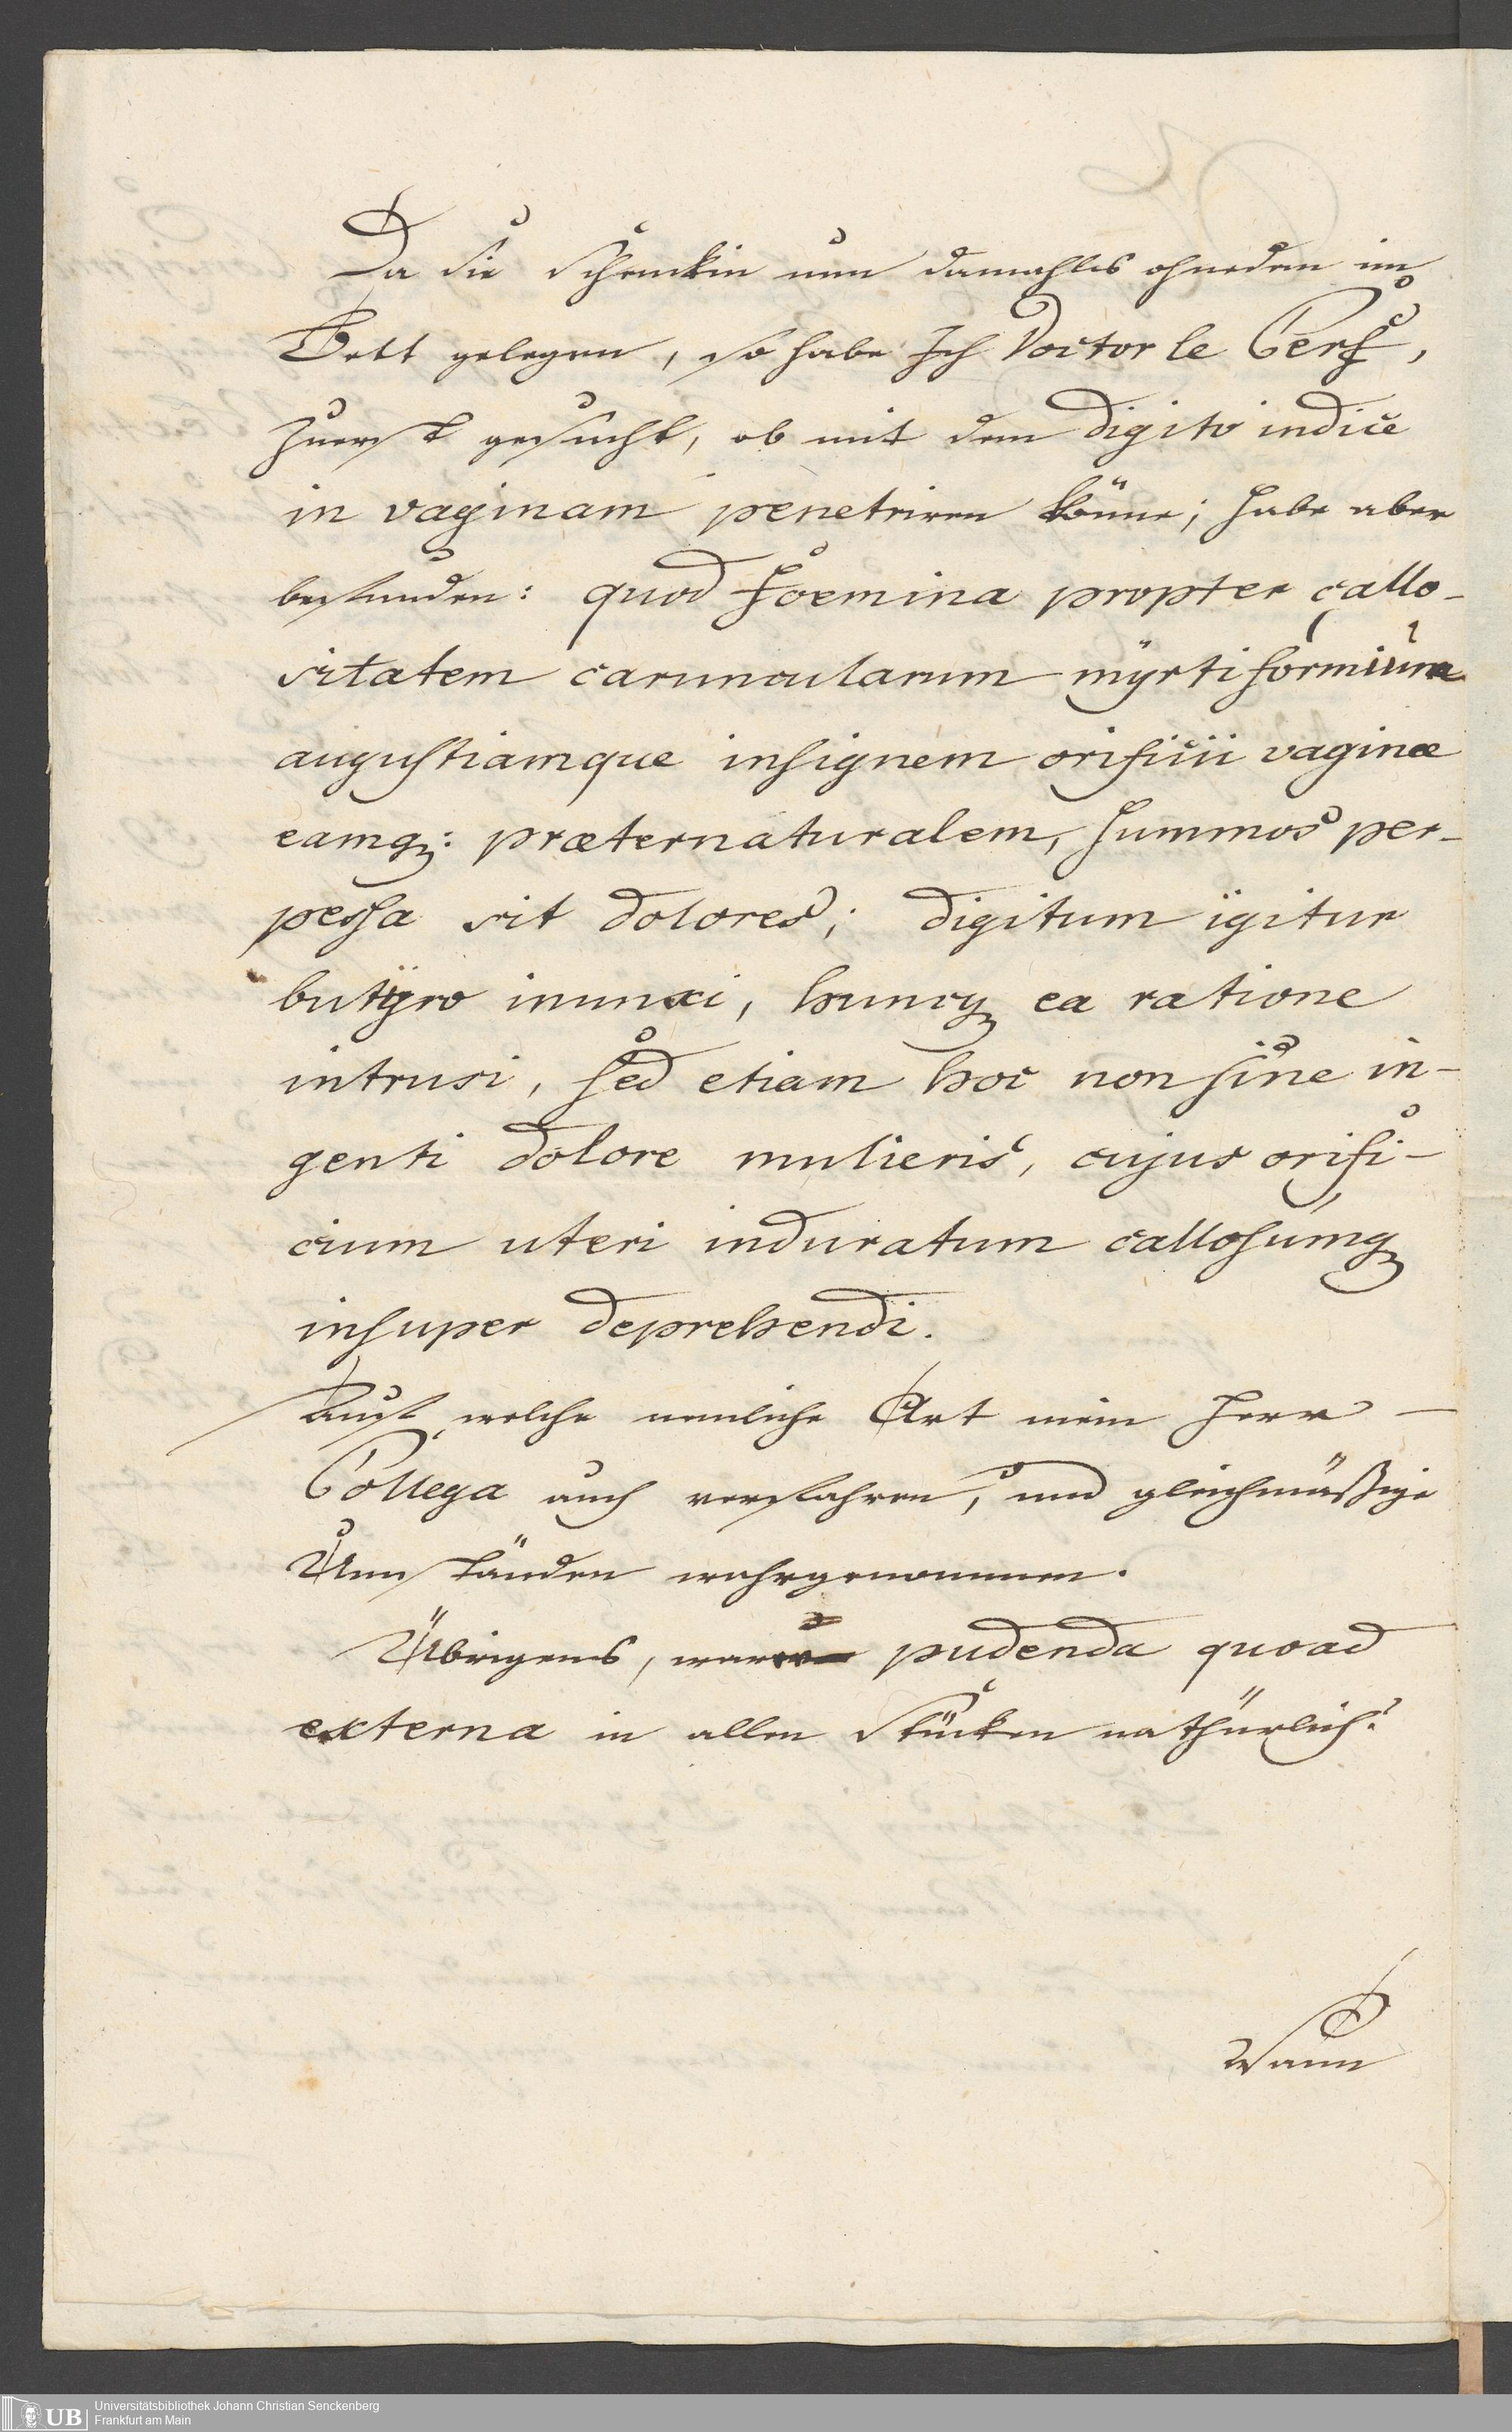 Da die Schenckin nun damahls ohnedem im
Bett gelegen, so habe Ich Doctor le Cerf,
zuerst gesucht, ob mit dem digito indice
in vaginam penetriren könne; habe aber
befunden: quod foemina propter callo-
sitatem caruncularum myrtiformium
angustiamque insignem orificii vaginæ
eamq: præternaturalem, summos per-
pessa sit dolores; digitum igitur
butyro inunxi, huncq ea ratione
intrusi, sed etiam hoc non sine in-
genti dolore mulieris, cujus orifi-
cium uteri induratum callosumq
insuper deprehendi.
Auf welche nemliche Art mein Herr
Collega auch verfahren, und gleichmäßige
Umständen wahrgenommen.
Übrigens, waren pudenda quoad
externa in allen Stücken nathürlich.
Wann
UB Universitätsbibliothek Johann Christian Senckenberg
Frankfurt am Main